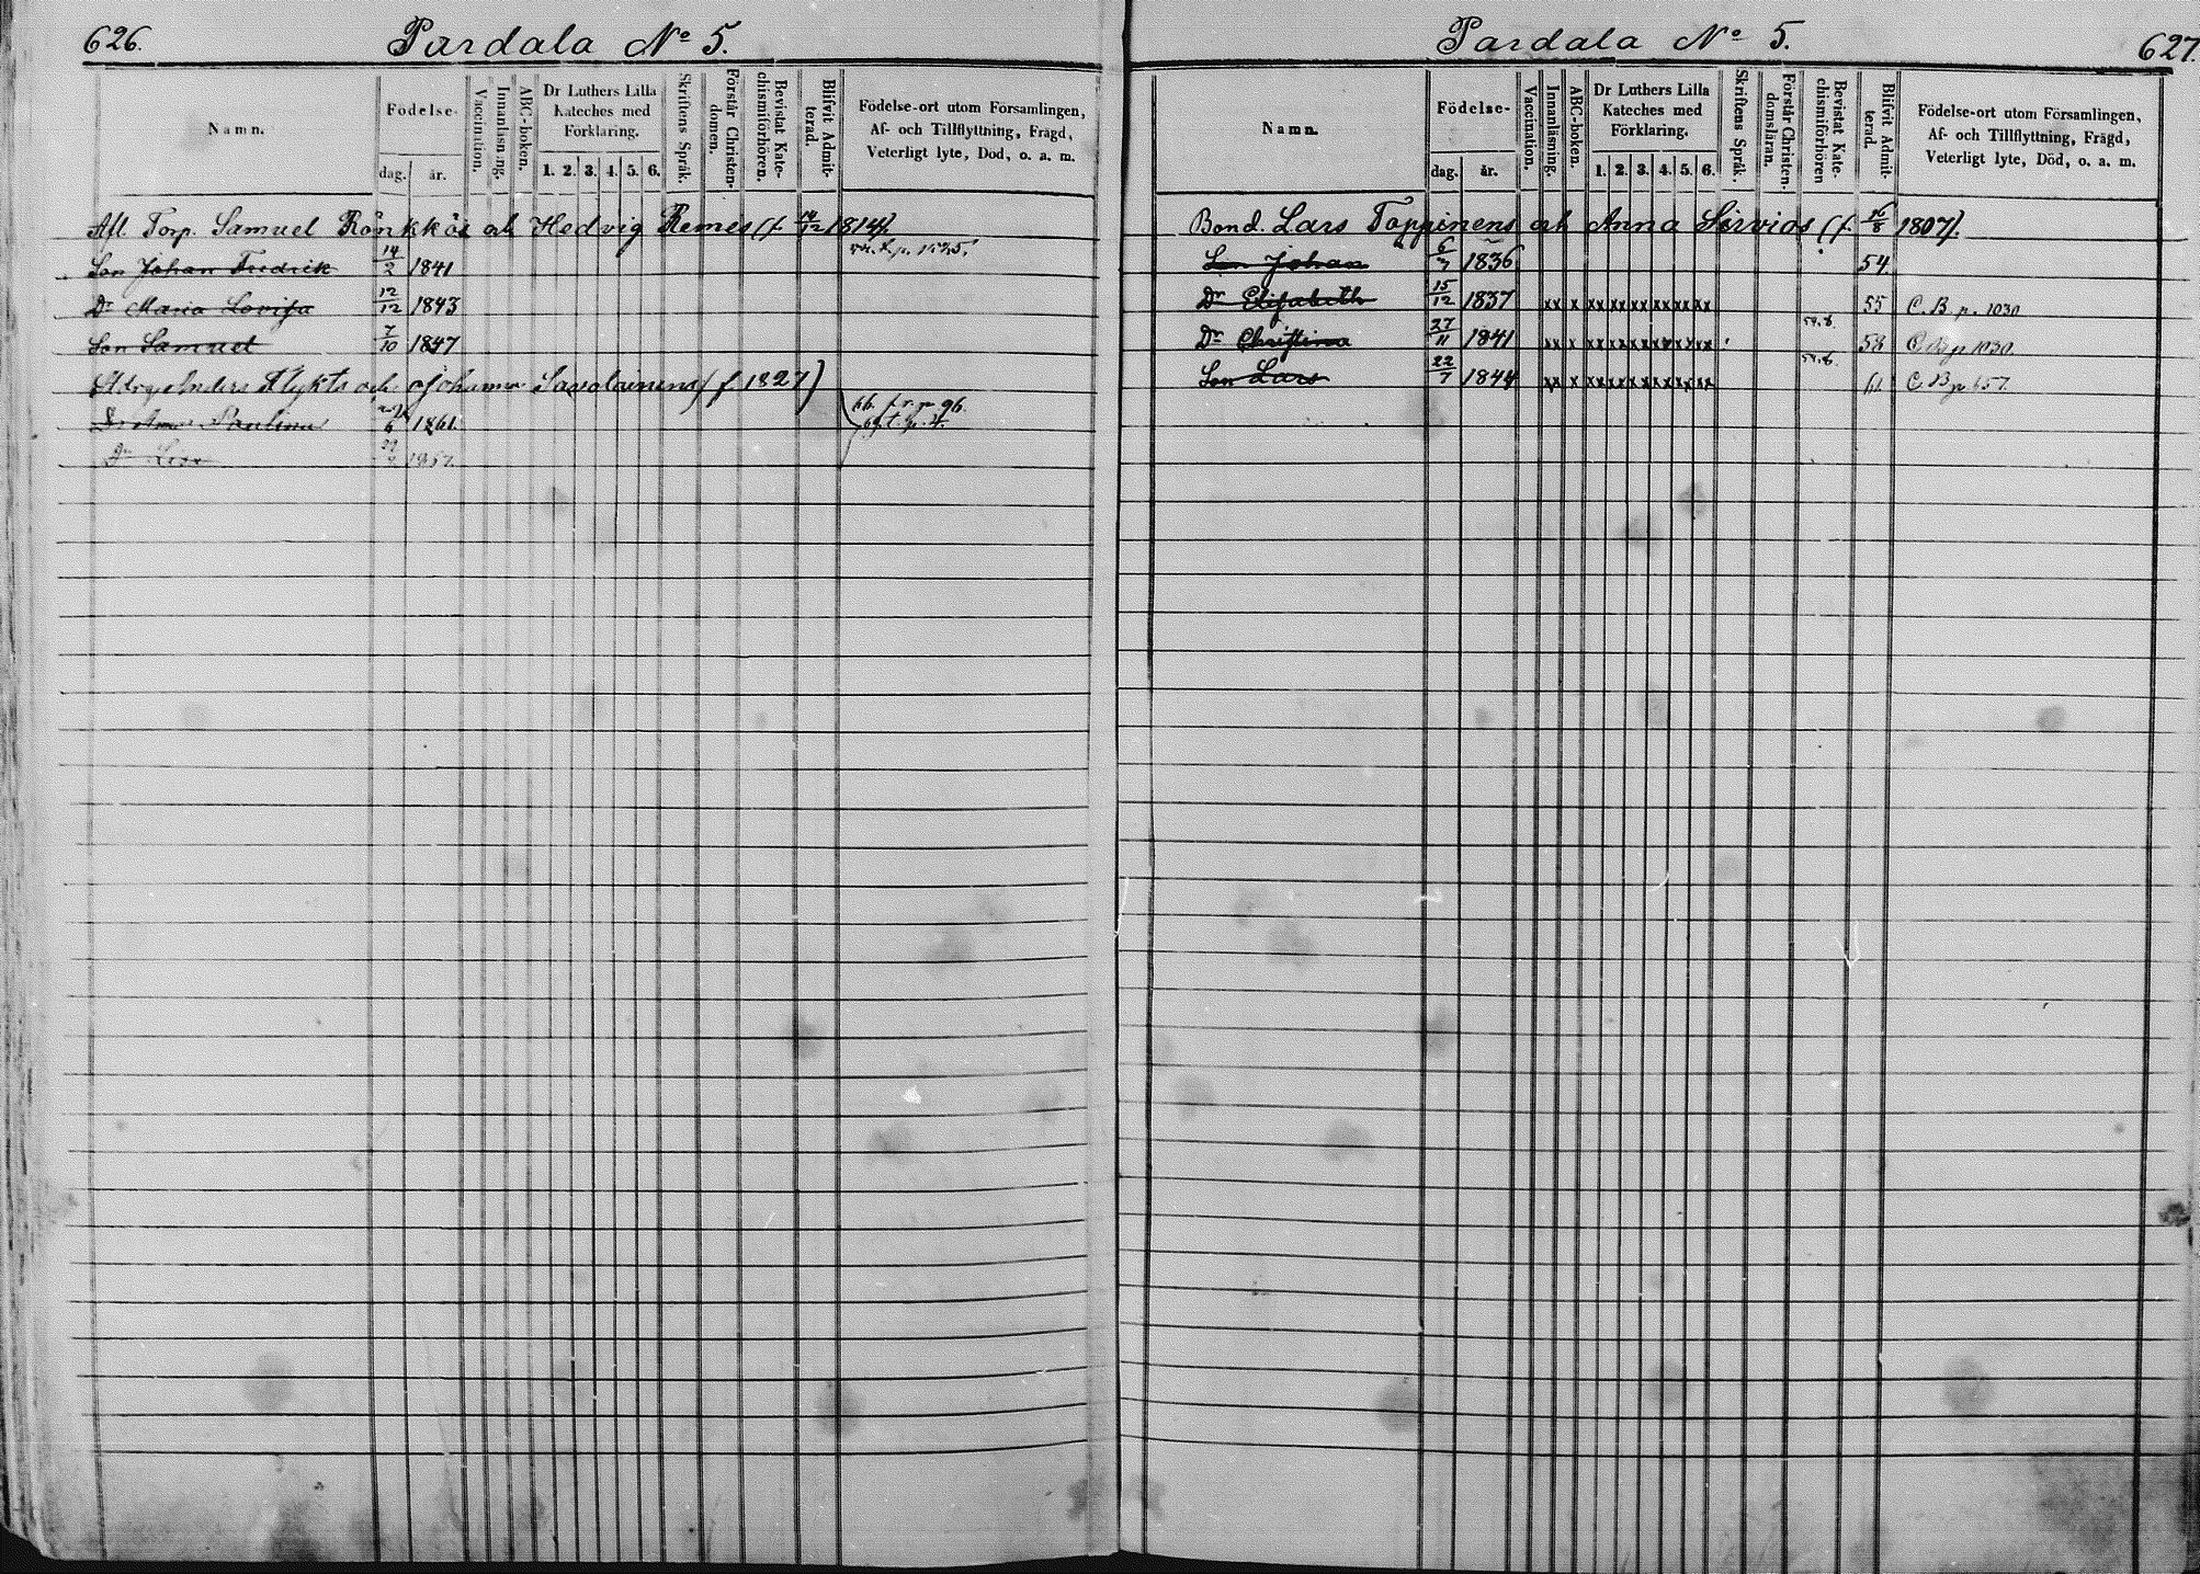 626. Pardala No 5.
Namn.
Födelse-
dag. år.
Vaccination.
Innanläsning.
ABC-boken.
Dr Luthers Lilla
Kateches med
Förklaring.
1. 2. 3. 4. 5. 6.
Skriftens Språk.
Förstår Christen-
domen.
Bevistat Kate-
chismiförhören.
Blifvit Admit-
terad.
Födelse-ort utom Församlingen,
Af- och Tillflyttning, Frägd,
Veterligt lyte, Död, o. a. m.
Afl. Torp. Samuel Rönkkös och Hedvig Remes (f. 14/12 1814).
Son Johan Fredrik 14/2 1841
Dr Maria Lovisa 12/12 1843
Son Samuel 7/10 1847
Anders Flykts och Johanna Savolainens (f 1827)
Paulina 6 1861 66. f. r. p 96.
Dr Lisa 1857.
Pardala No 5. 627.
Namn.
Födelse-
dag. år.
Vaccination.
Innanläsning.
ABC-boken.
Dr Luthers Lilla
Kateches med
Förklaring.
1. 2. 3. 4. 5. 6.
Skriftens Språk.
Förstår Christen-
domsläran.
Bevistat Kate-
chismiförhören
Blifvit Admit-
terad.
Födelse-ort utom Församlingen,
Af- och Tillflyttning, Frägd,
Veterligt lyte, Död, o. a. m.
Bond. Lars Toppinens och Anna Sirviös (f. 16/8 1807).
Son Johan 6/7 1836 54
Dr Elisabeth 15/12 1837 xx x xx xx xx xx xx xx 55 C. B p. 1030
Dr Christina 27/11 1841 xx x xx xx xx xx xx xx 58 C B p 1030.
Son Lars 22/7 1844 xx x xx xx xx xx xx xx 61 C B p 657.